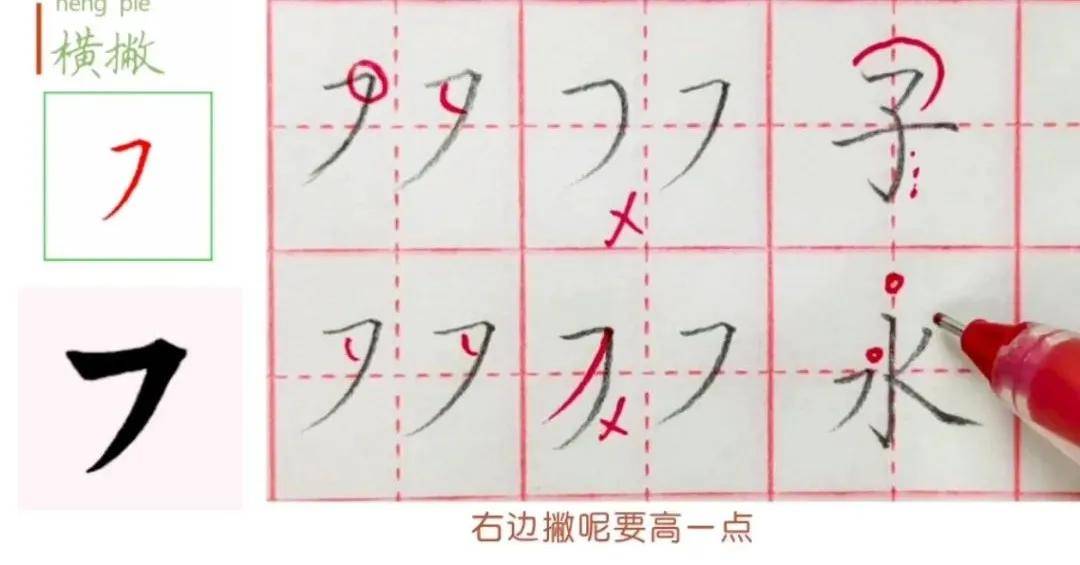 heng pie
横撇
子
水
右边撇呢要高一点